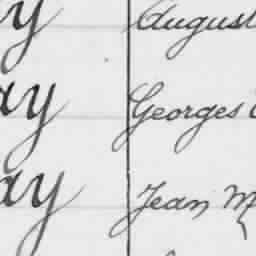 y August
ay Georges
ay Jean M